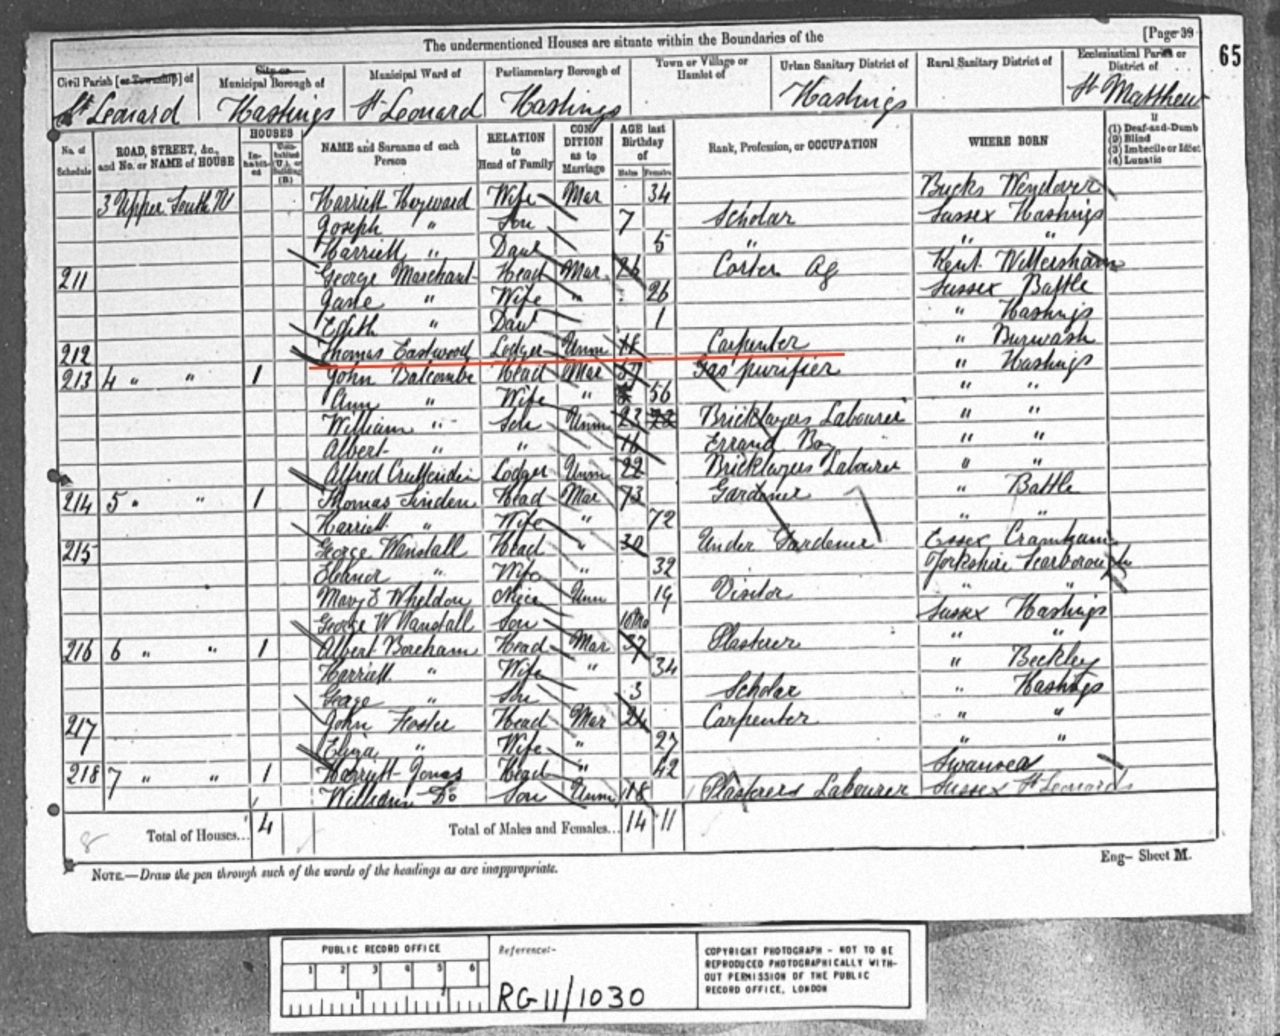 The undermentioned Houses are situate within the Boundaries of the
[Page 39
65
Civil Parish [or Township] of
St Leonard
City or
Municipal Borough of
Hastings
Municipal Ward of
St Leonard
Parliamentary Borough of
Hastings
Town or Village or
Hamlet of
Urban Sanitary District of
Hastings
Rural Sanitary District of
Ecclesiastical Parish or
District of
St Matthew
No. of Schedule
ROAD, STREET, &c., and No. or NAME of HOUSE
HOUSES
In-habit-ed
Unin-habited (U.), or Building (B.)
NAME and Surname of each Person
RELATION to Head of Family
CON-DITION as to Marriage
AGE last Birthday of
Males
Females
Rank, Profession, or OCCUPATION
WHERE BORN
If
(1) Deaf-and-Dumb
(2) Blind
(3) Imbecile or Idiot
(4) Lunatic
3 Upper South Rd Harriett Heyward Wife Mar 34 Bucks Wendover
Joseph " Son 7 Scholar Sussex Hastings
Harriett " Daur 5 " " "
211 George Marchant Head Mar 26 Carter Ag Kent Wittersham
Jane " Wife " 26 Sussex Battle
Edith " Daur 1 " Hastings
212 Thomas Eastwood Lodger Unm 18 Carpenter " Burwash
213 4 " " 1 John Balcombe Head Mar 57 Gas purifier " Hastings
Ann " Wife " 56 " "
William " Son Unm 23 22 Bricklayers Labourer " "
Albert " " 16 Errand Boy " "
Alfred Cruttenden Lodger Unm 22 Bricklayers Labourer " "
214 5 " " 1 Thomas Tinden Head Mar 73 Gardener " Battle
Harriett " Wife " 72 " "
215 George Wanstall Head " 30 Under Gardener Essex Cranham
Eleanor " Wife " 32 Yorkshire Scarborough
Mary E Wheldon Niece Unm 19 Visitor " "
George W Wanstall Son 10Mo Sussex Hastings
216 6 " " 1 Albert Boreham Head Mar 37 Plasterer " "
Harriett " Wife " 34 " Beckley
George " Son 3 Scholar " Hastings
217 John Foster Head Mar 24 Carpenter " "
Eliza " Wife " 27 " "
218 7 " " 1 Harriett Jones Head " 42 Swansea
William Do Son Unm 18 Plasterers Labourer Sussex St Leonards
8 Total of Houses... 4 Total of Males and Females... 14 11
NOTE.—Draw the pen through such of the words of the headings as are inappropriate.
Eng— Sheet M.
PUBLIC RECORD OFFICE
1 2 3 4 5 6
1 2
Reference:-
RG 11/1030
COPYRIGHT PHOTOGRAPH - NOT TO BE
REPRODUCED PHOTOGRAPHICALLY WITH-
OUT PERMISSION OF THE PUBLIC
RECORD OFFICE, LONDON